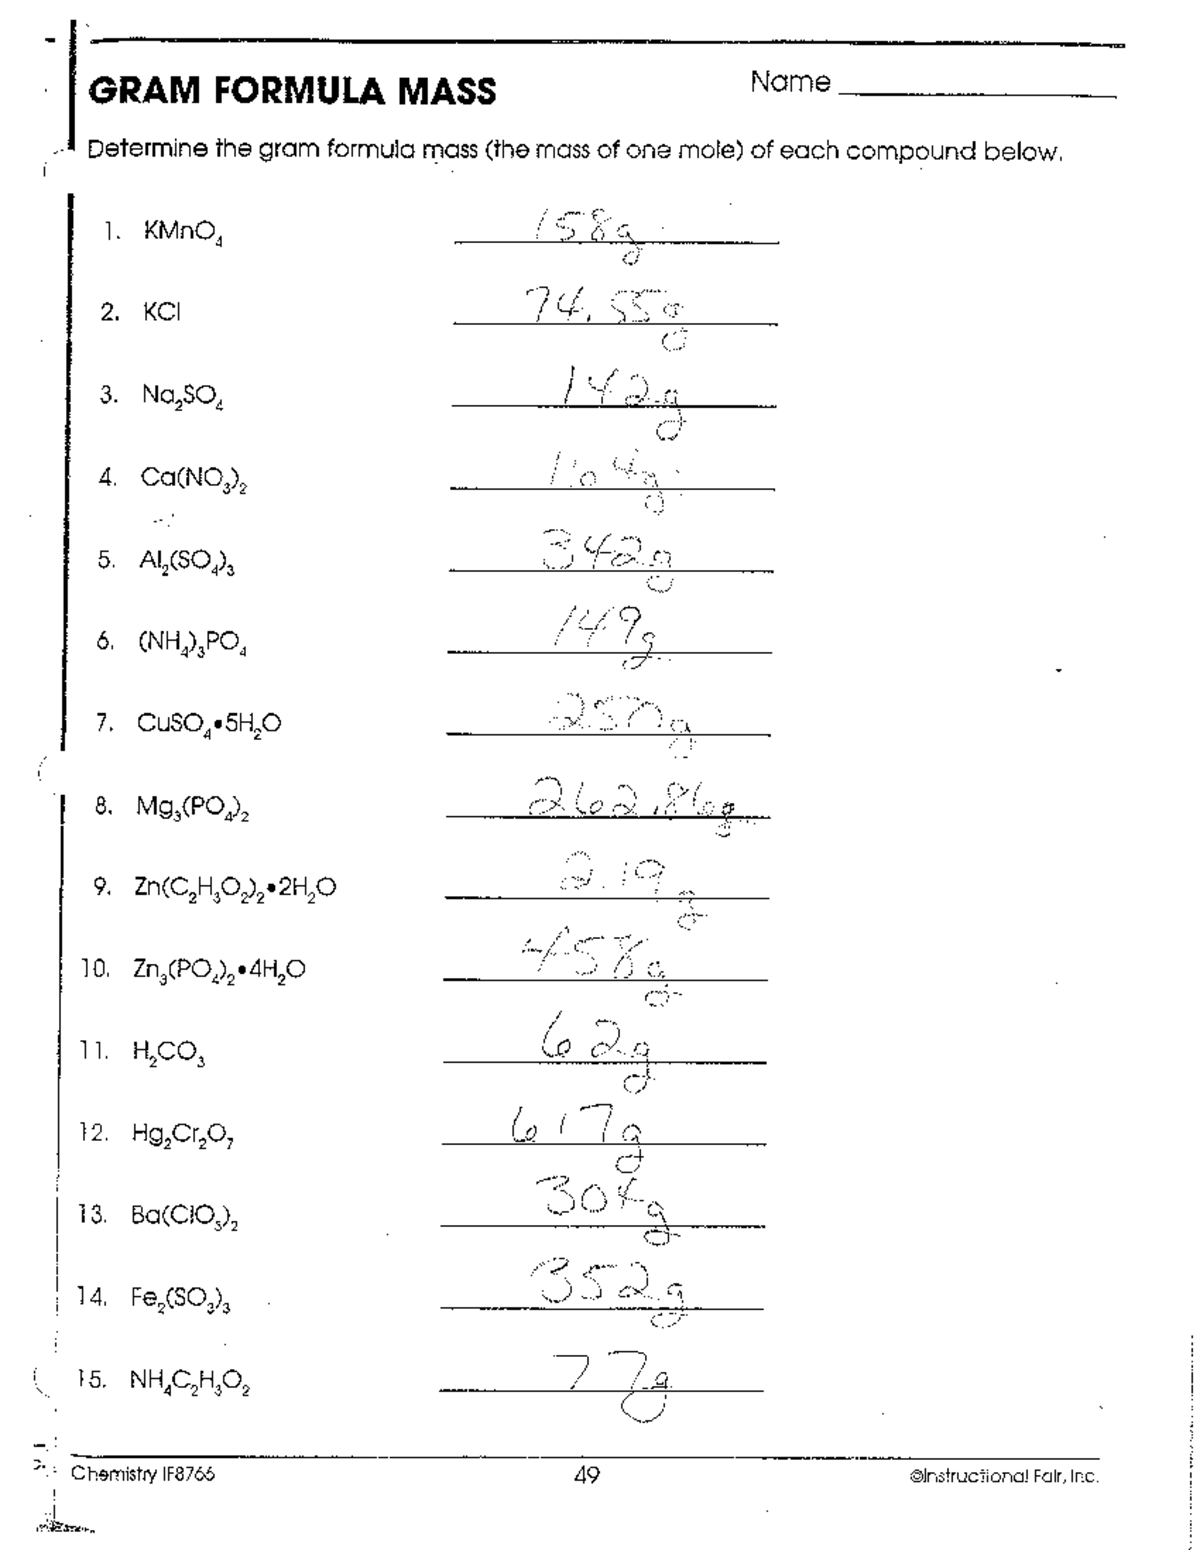 GRAM FORMULA MASS
Name
Determine the gram formula mass (the mass of one mole) of each compound below.
1. KMnO₄ 158g
2. KCl 74.55g
3. Na₂SO₄ 142g
4. Ca(NO₃)₂ 164g
5. Al₂(SO₄)₃ 342g
6. (NH₄)₃PO₄ 149g
7. CuSO₄•5H₂O 250g
8. Mg₃(PO₄)₂ 262.86g
9. Zn(C₂H₃O₂)₂•2H₂O 219 g
10. Zn₃(PO₄)₂•4H₂O 458g
11. H₂CO₃ 62g
12. Hg₂Cr₂O₇ 617g
13. Ba(ClO₃)₂ 304g
14. Fe₂(SO₃)₃ 352g
15. NH₄C₂H₃O₂ 77g
Chemistry IF8766 49 ©Instructional Fair, Inc.